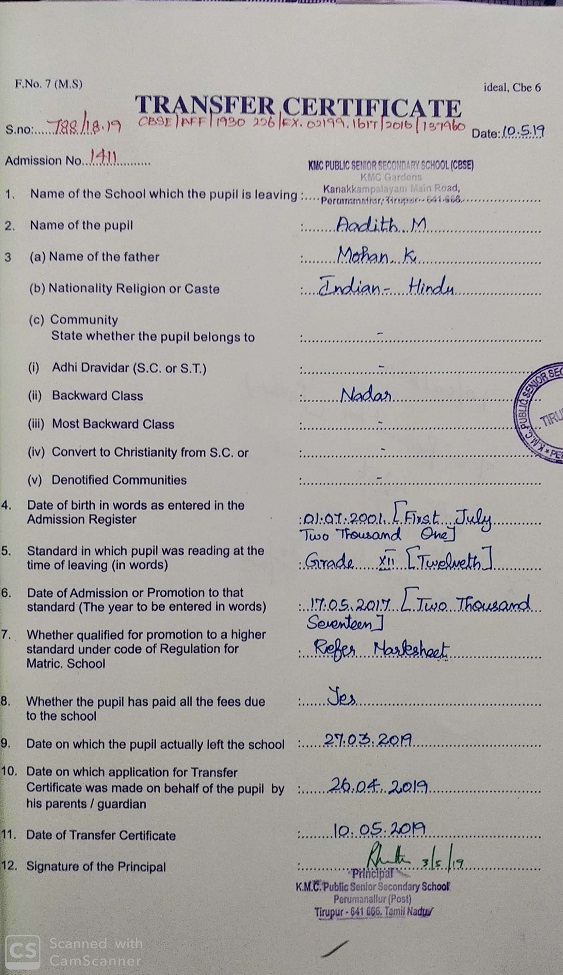 F.No. 7 (M.S)
ideal, Cbe 6
TRANSFER CERTIFICATE
S.no:.....788/18.19
Date:10.5.19
Admission No. 1411
KMC PUBLIC SENIOR SECONDARY SCHOOL (CBSE)
KMC Gardens
1. Name of the School which the pupil is leaving :.... Kanakkampalayam Main Road,
Perumanallur, Tirupur - 641 666.
2. Name of the pupil : Aadith. M
3 (a) Name of the father : Mohan. K
(b) Nationality Religion or Caste : Indian - Hindu
(c) Community
State whether the pupil belongs to : -
(i) Adhi Dravidar (S.C. or S.T.) : -
(ii) Backward Class : Nadar
(iii) Most Backward Class : -
(iv) Convert to Christianity from S.C. or : -
(v) Denotified Communities : -
4. Date of birth in words as entered in the
Admission Register : 01.07.2001. [First July
Two Thousand One]
5. Standard in which pupil was reading at the
time of leaving (in words) : Grade XII [Twelveth]
6. Date of Admission or Promotion to that
standard (The year to be entered in words) : 17.05.2017 [Two Thousand
Seventeen]
7. Whether qualified for promotion to a higher
standard under code of Regulation for : Refer Marksheet
Matric. School
8. Whether the pupil has paid all the fees due : Yes
to the school
9. Date on which the pupil actually left the school : 27.03.2019
10. Date on which application for Transfer
Certificate was made on behalf of the pupil by : 26.04.2019
his parents / guardian
11. Date of Transfer Certificate : 10.05.2019
12. Signature of the Principal : 3/5/19
Principal
K.M.C. Public Senior Secondary School
Perumanallur (Post)
Tirupur - 641 666. Tamil Nadu
K.M.C. PUBLIC SENIOR SEC
TIRU
CS Scanned with
CamScanner